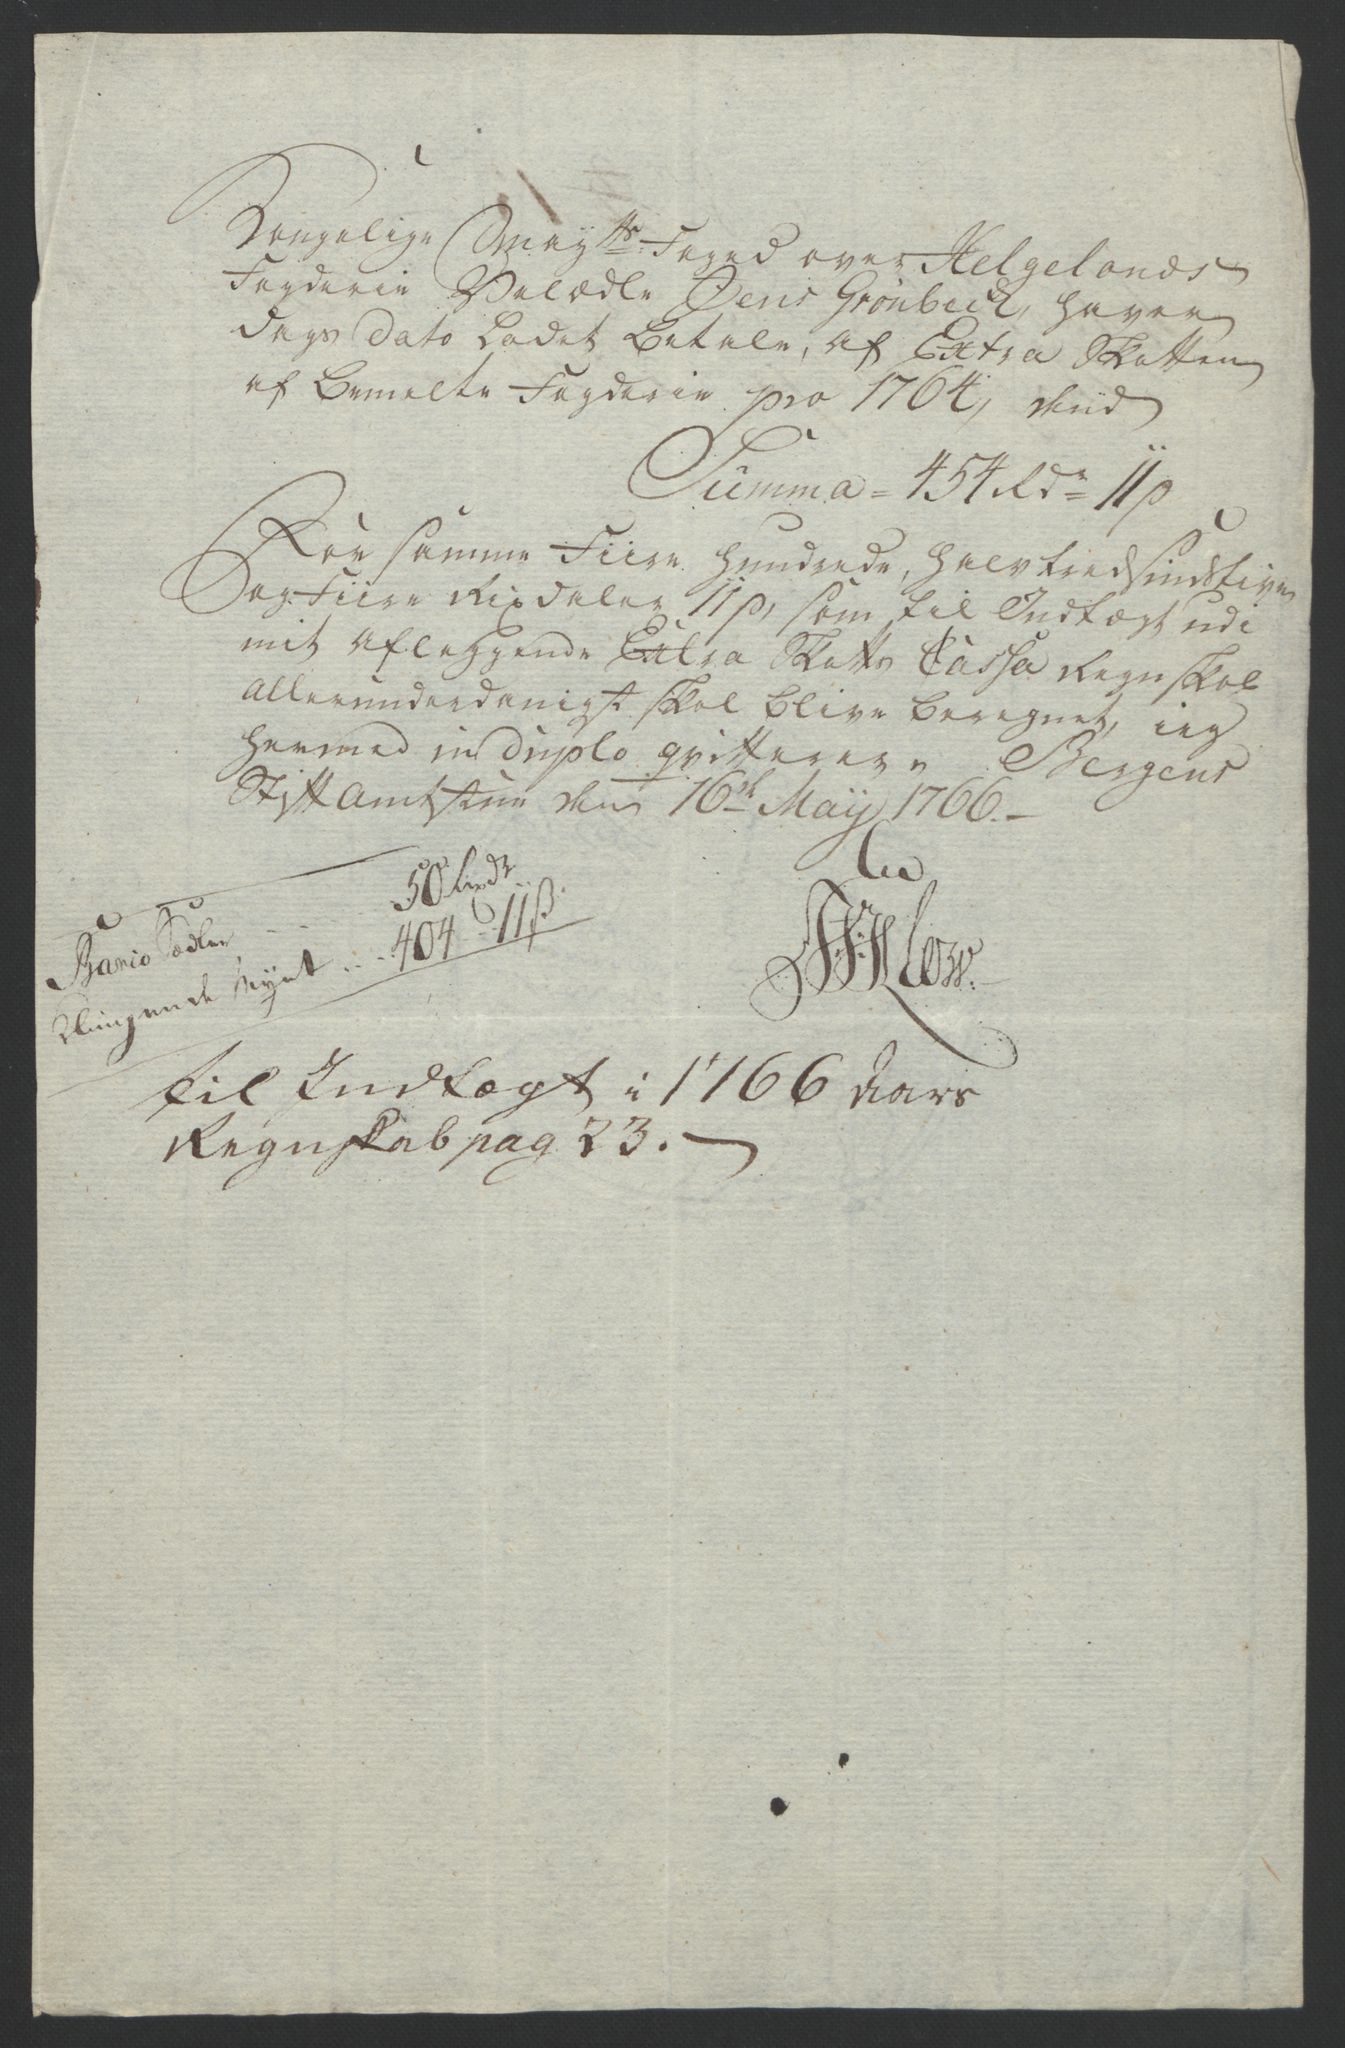 Kongelige Mayts: Foged over Helgelands
Fogderie Velædle Jens Grönbech, haver
dags dato ladet betale, af Extra Skatten
af bemelte Fogderie pro 1764, med
Summa = 454 Rdr = 11 s
For samme Fiire hundrede, halvtredsindstive
og Fiire Rixdaler 11 s, som til Indtægt udi
mit aflæggende Extra Skatts Cassa Regnskab
allerunderdanigst skal blive beregnet, ieg
hermed in duplo qvitterer. Bergens
Stiftamtstue den 16de Maÿ 1766.
50 Rixdr
Banco Sædler
Klingende Mÿnt ... 404 " 11 ß.
til Indtægt i 1766 Aars
Regnskab pag 23.